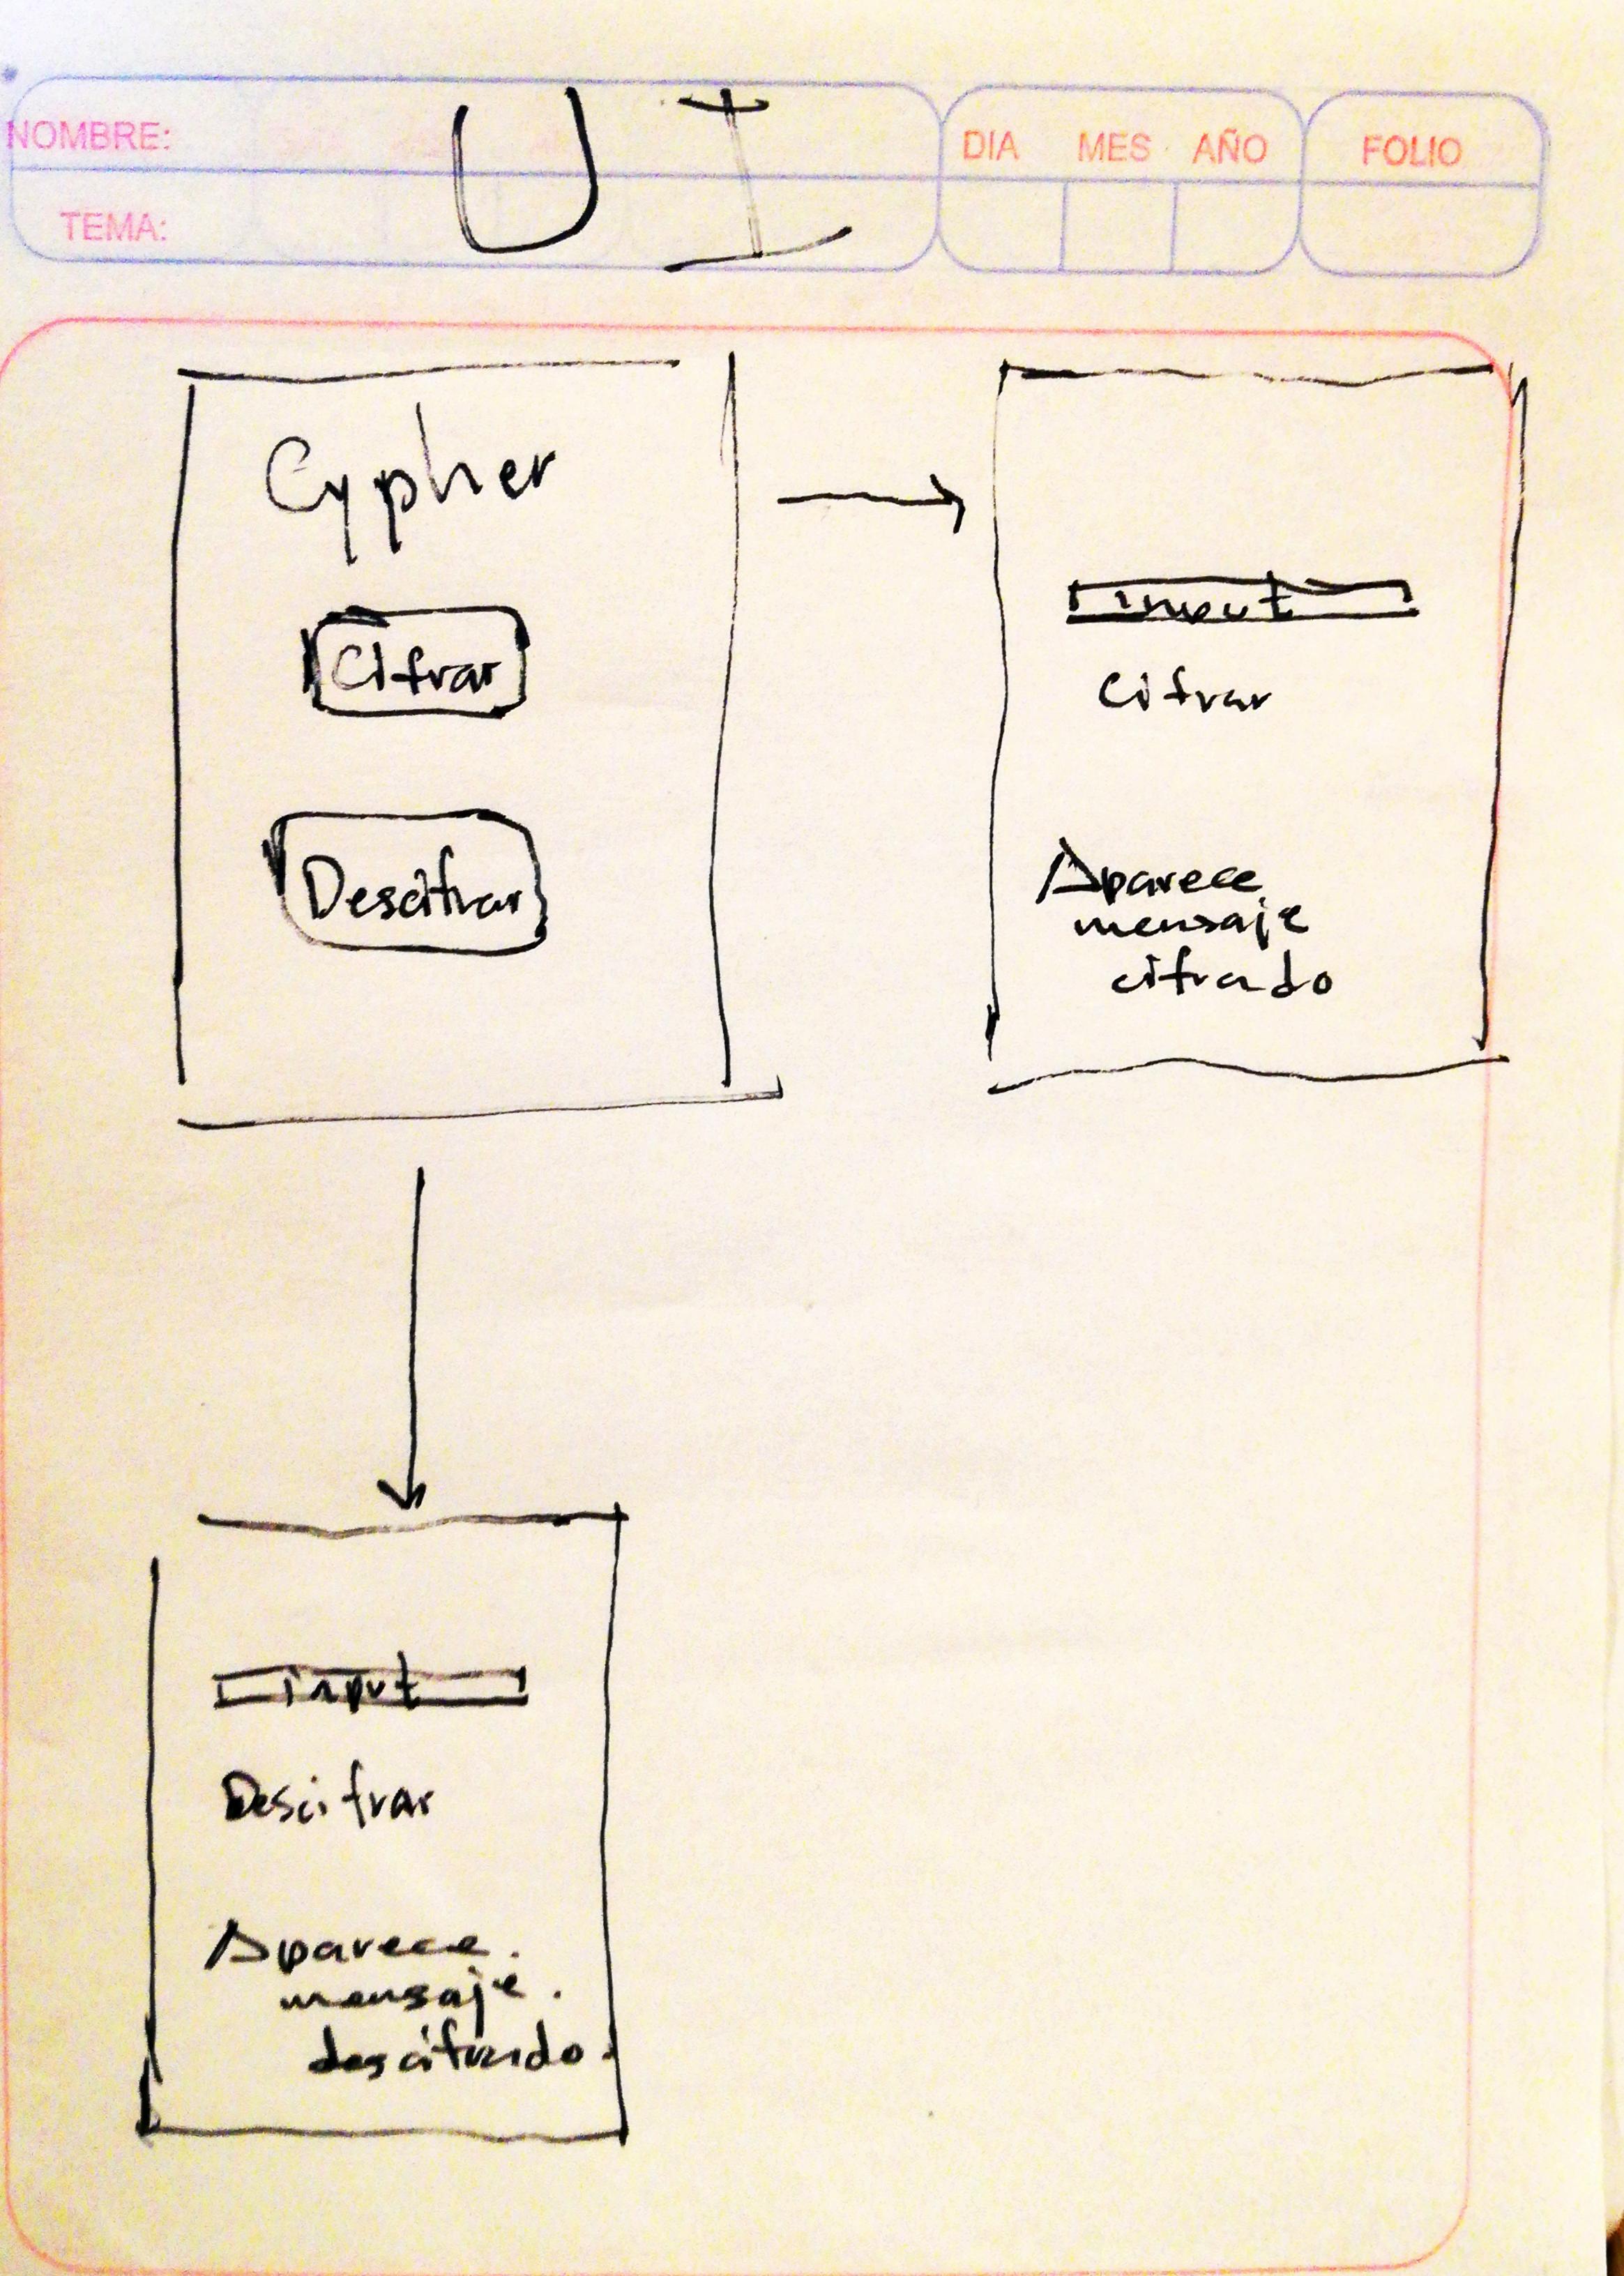 NOMBRE:
UI
DIA MES AÑO
FOLIO
TEMA:
Cypher
Cifrar
Descifrar
input
Cifrar
Aparece
mensaje
cifrado
input
Descifrar
Aparece.
mensaje.
descifrado.